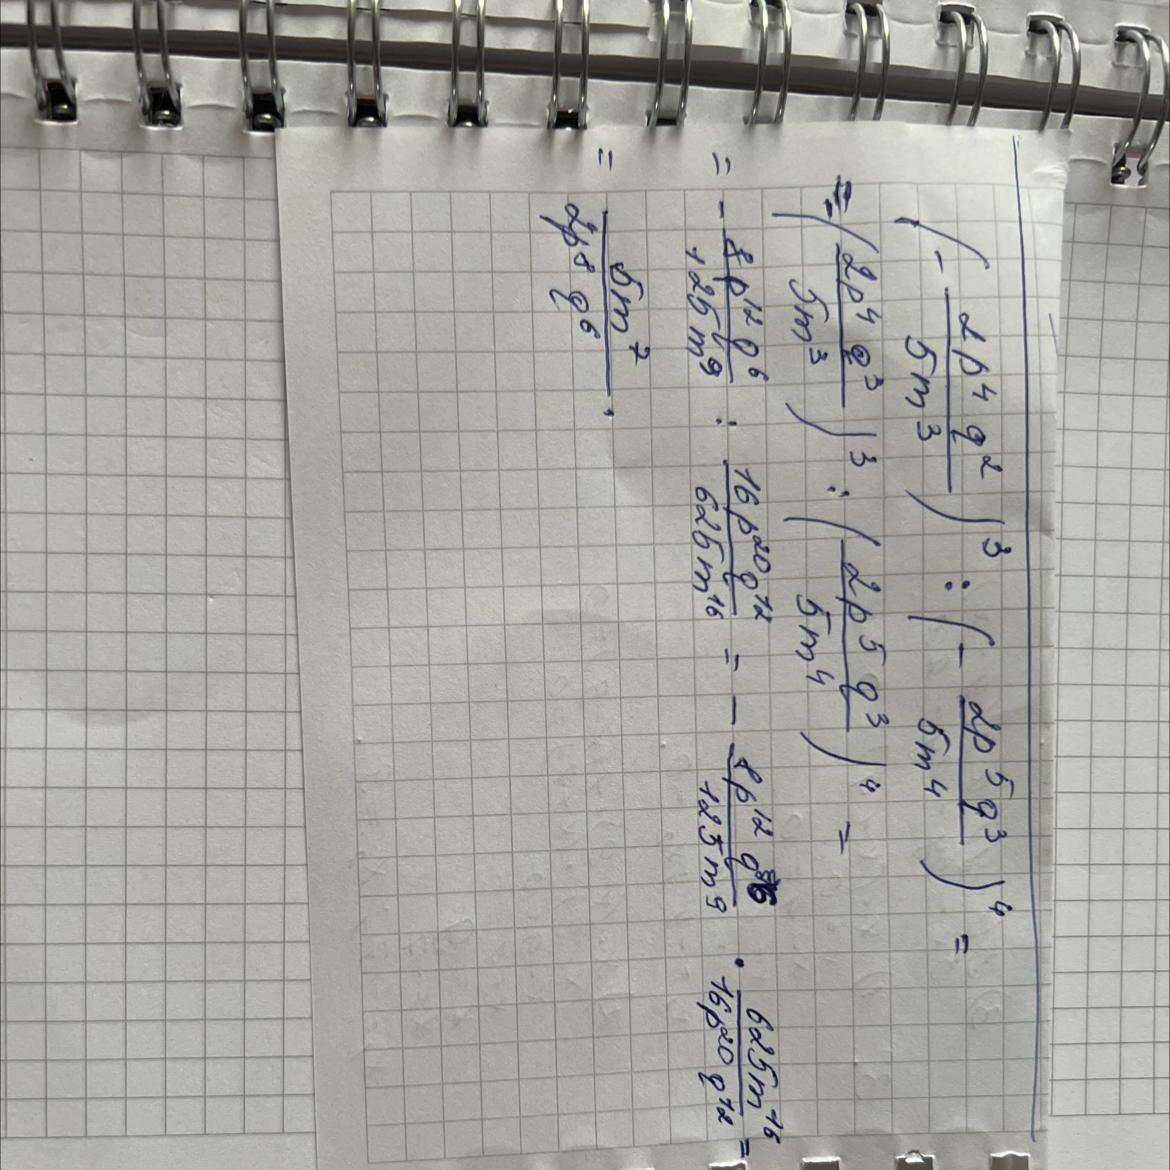 (- 2p⁴q² / 5m³)³ : (- 2p⁵q³ / 5m⁴)⁴ =
= (2p⁴q³ / 5m³)³ : (2p⁵q³ / 5m⁴)⁴ =
= - 8p¹²q⁶ / 125m⁹ : 16p²⁰q¹² / 625m¹⁶ = - 8p¹²q⁶ / 125m⁹ · 625m¹⁶ / 16p²⁰q¹² =
= 5m⁷ / 2p⁸q⁶ .